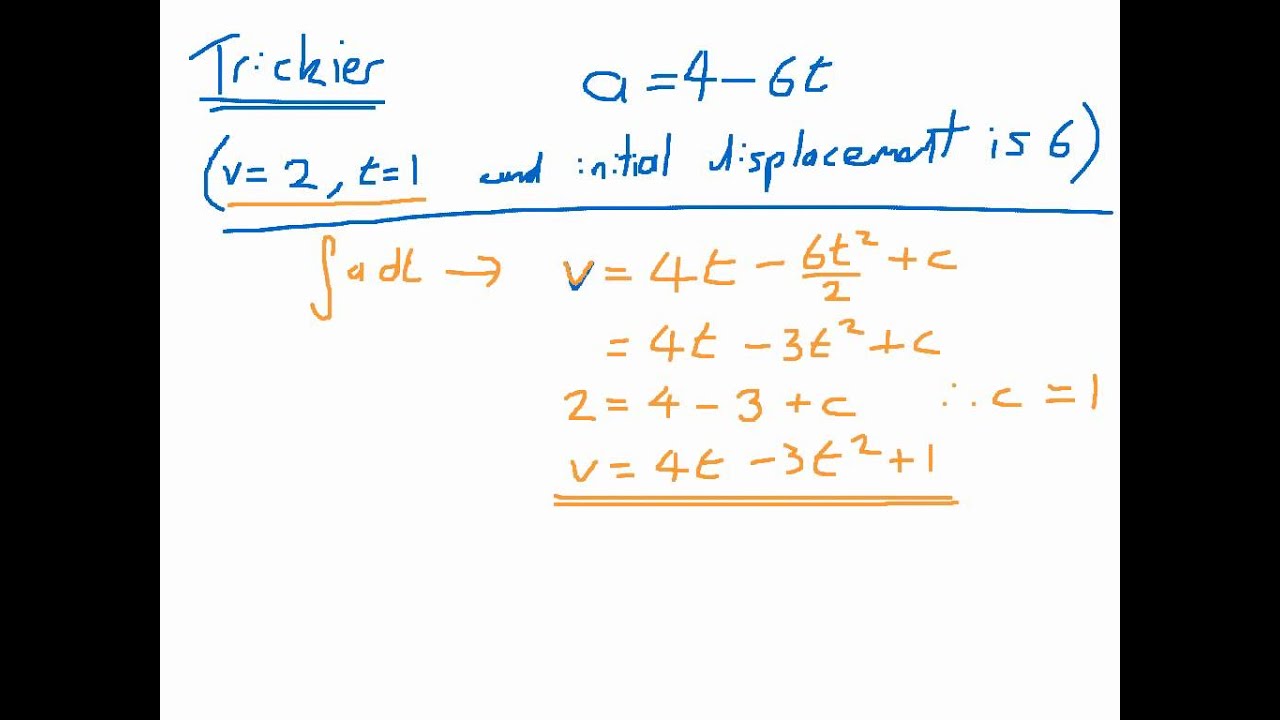 Trickier a = 4 – 6t
(v = 2, t = 1 and initial displacement is 6)
∫ a dt → v = 4t – 6t²/2 + c
= 4t – 3t² + c
2 = 4 – 3 + c ∴ c = 1
v = 4t – 3t² + 1